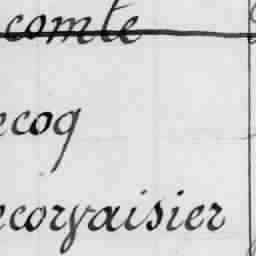 comte
ecoq
ecorvaisier